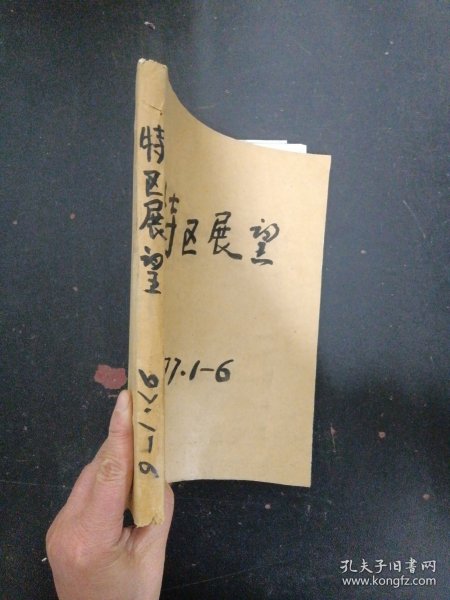 特区展望
97.1-6
特区展望
97.1-6
孔夫子旧书网
www.kongfz.com